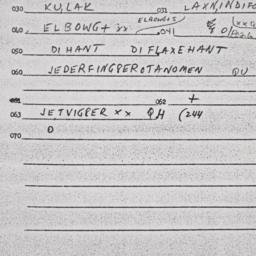 030 KULAK 031 LAXN, INDIFO
ELBOWGS
040 ELBOWG+ 041
050 DIHANT DIFLAXEHANT
060 JEDERFINGPEROTANOMEN QU
061 062 +
063 JETVIGPER XX QH (244
0
070